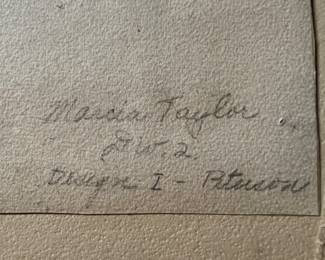 Marcia Taylor
DW. 2.
Design I - Peterson